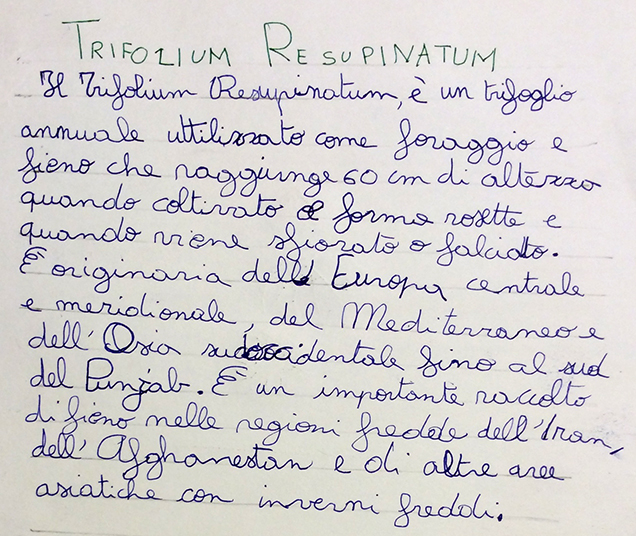 TRIFOLIUM RESUPINATUM
Il Trifolium Resupinatum, è un trifoglio
annuale uttilizzato come foraggio e
fieno che raggiunge 60 cm di altezza
quando coltivato e forma rosette e
quando viene sfiorato o falciato.
È originaria dell' Europa centrale
e meridionale, del Mediterraneo e
dell'Asia sudoccidentale fino al sud
del Punjab. È un importante raccolto
di fieno nelle regioni fredde dell'Iran,
dell'Afghanestan e di altre aree
asiatiche con inverni freddi.